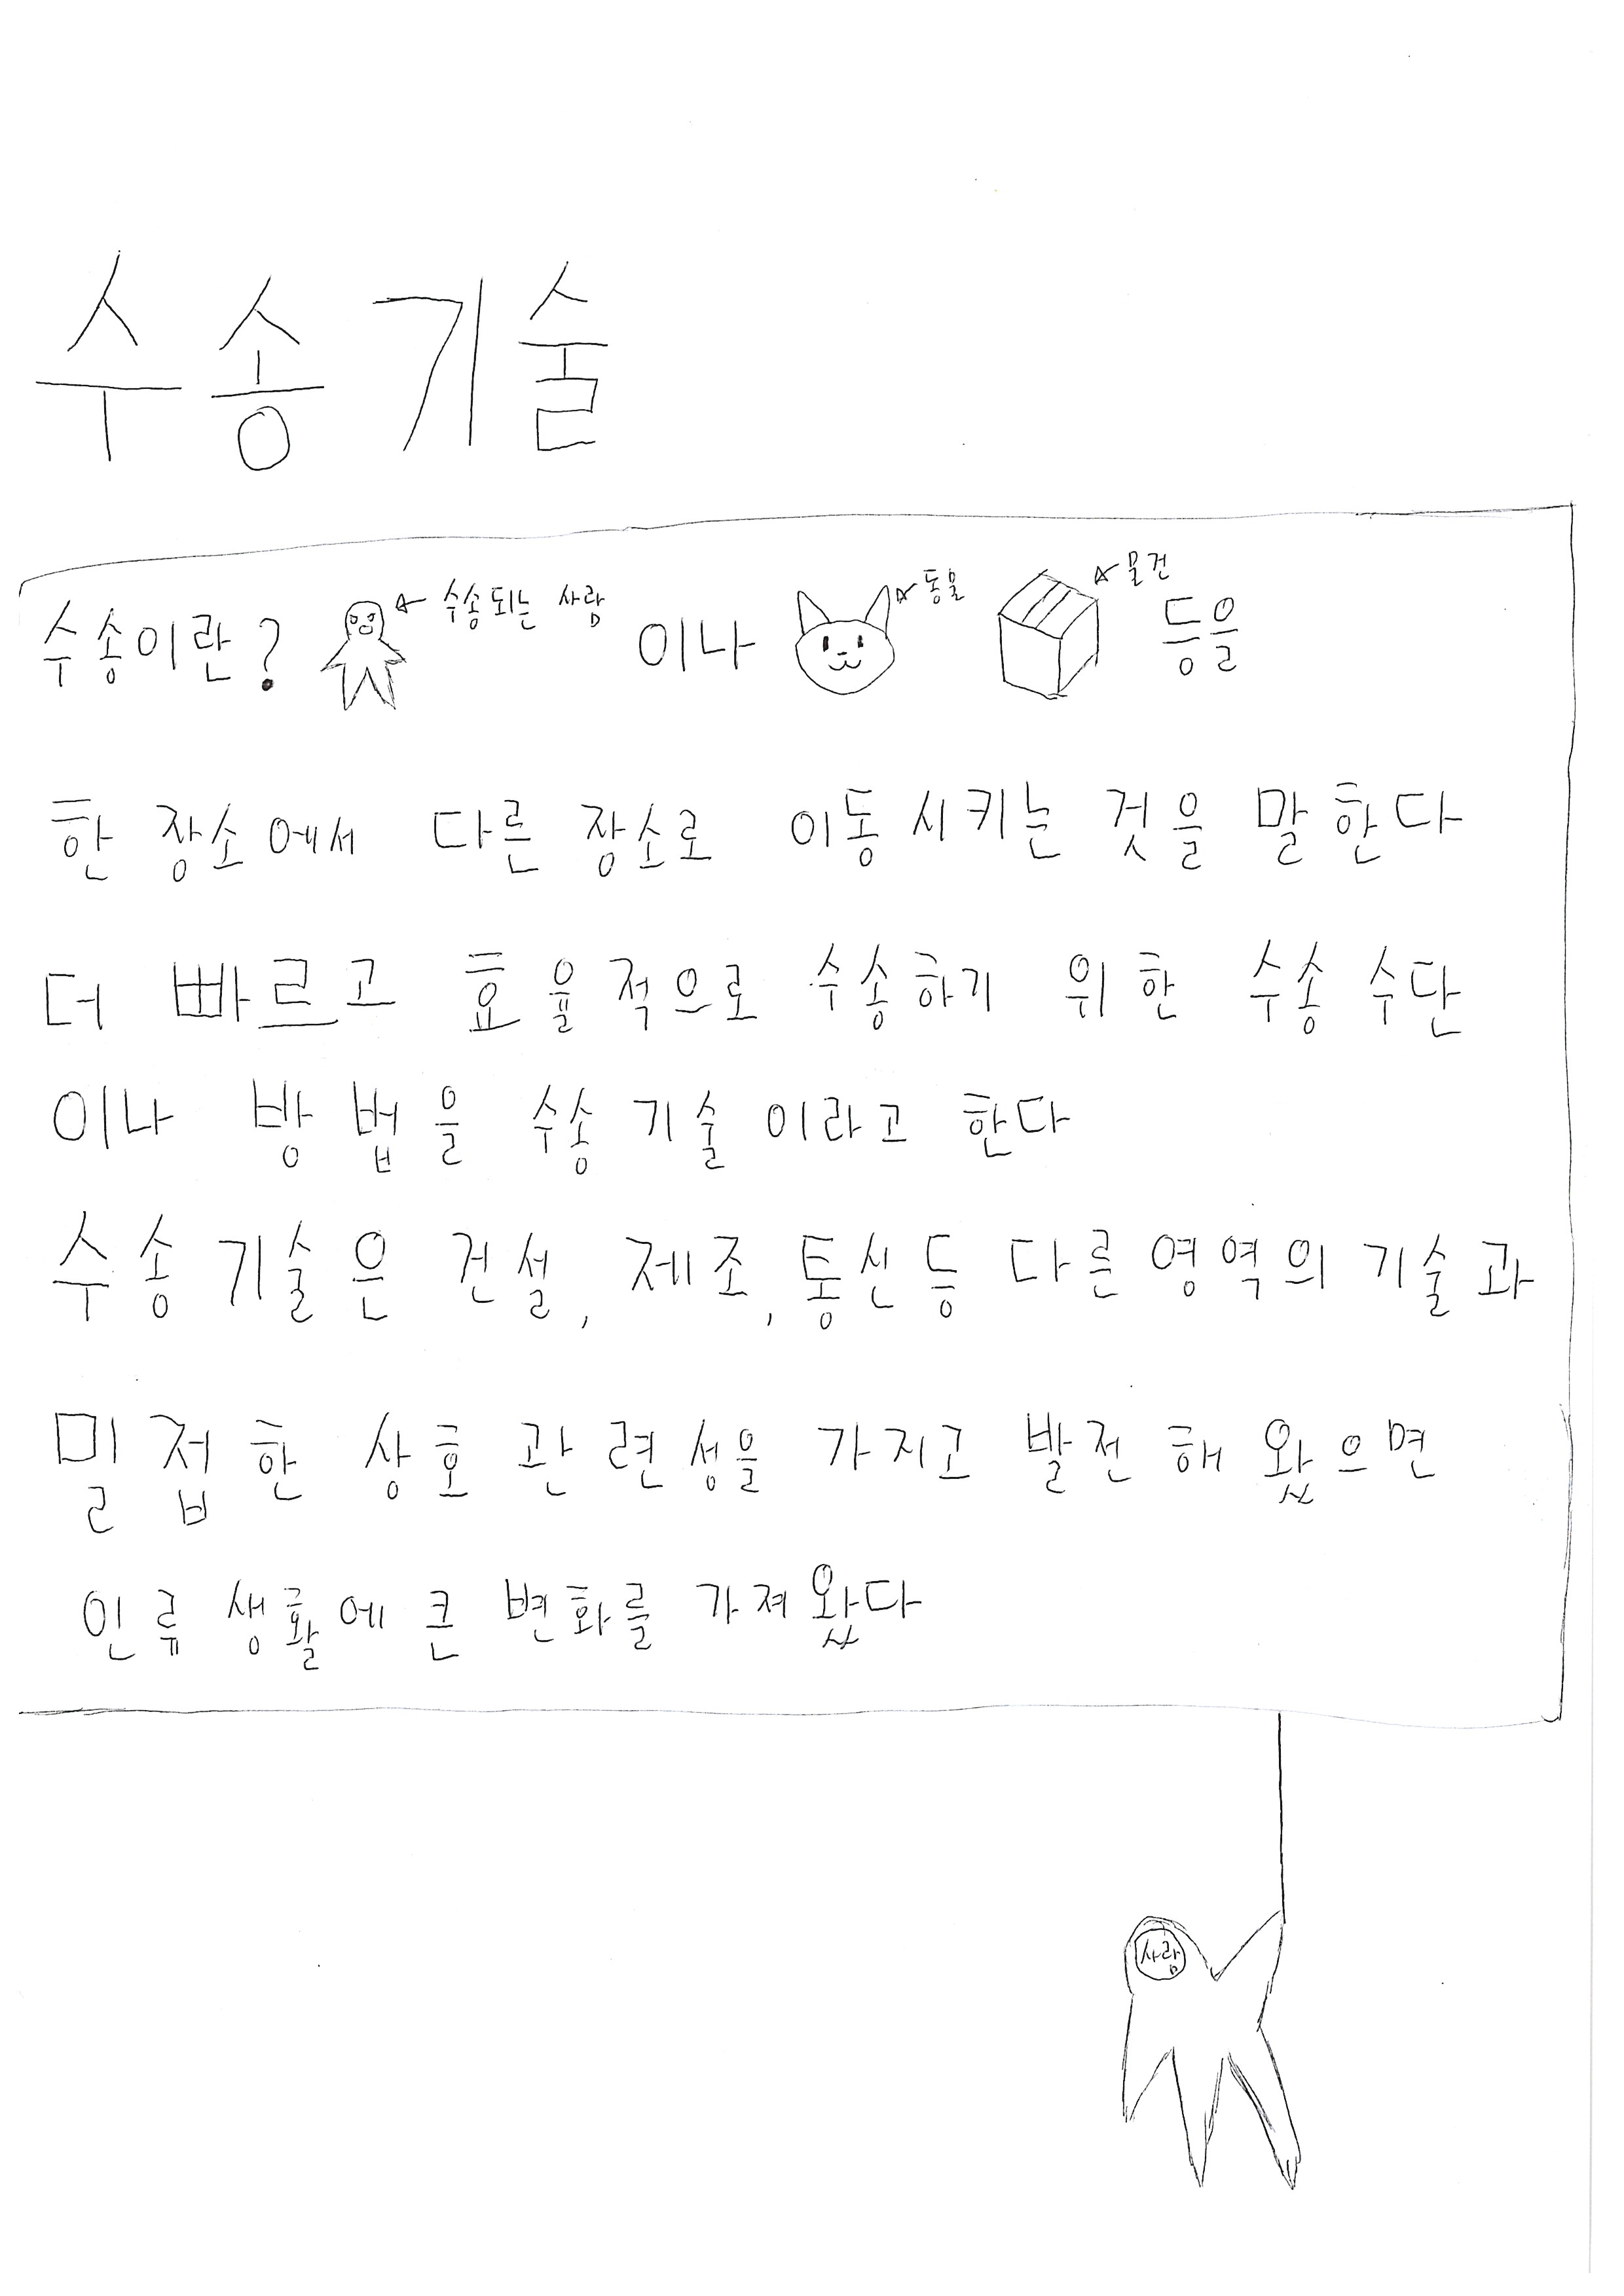 수송기술
수송이란? 수송되는 사람 이나 동물 물건 등을
한 장소에서 다른 장소로 이동시키는 것을 말한다
더 빠르고 효율적으로 수송하기 위한 수송 수단
이나 방법을 수송 기술 이라고 한다
수송 기술은 건설, 제조, 통신등 다른 영역의 기술과
밀접한 상호 관련성을 가지고 발전 해 왔으면
인류 생활에 큰 변화를 가져왔다
사람